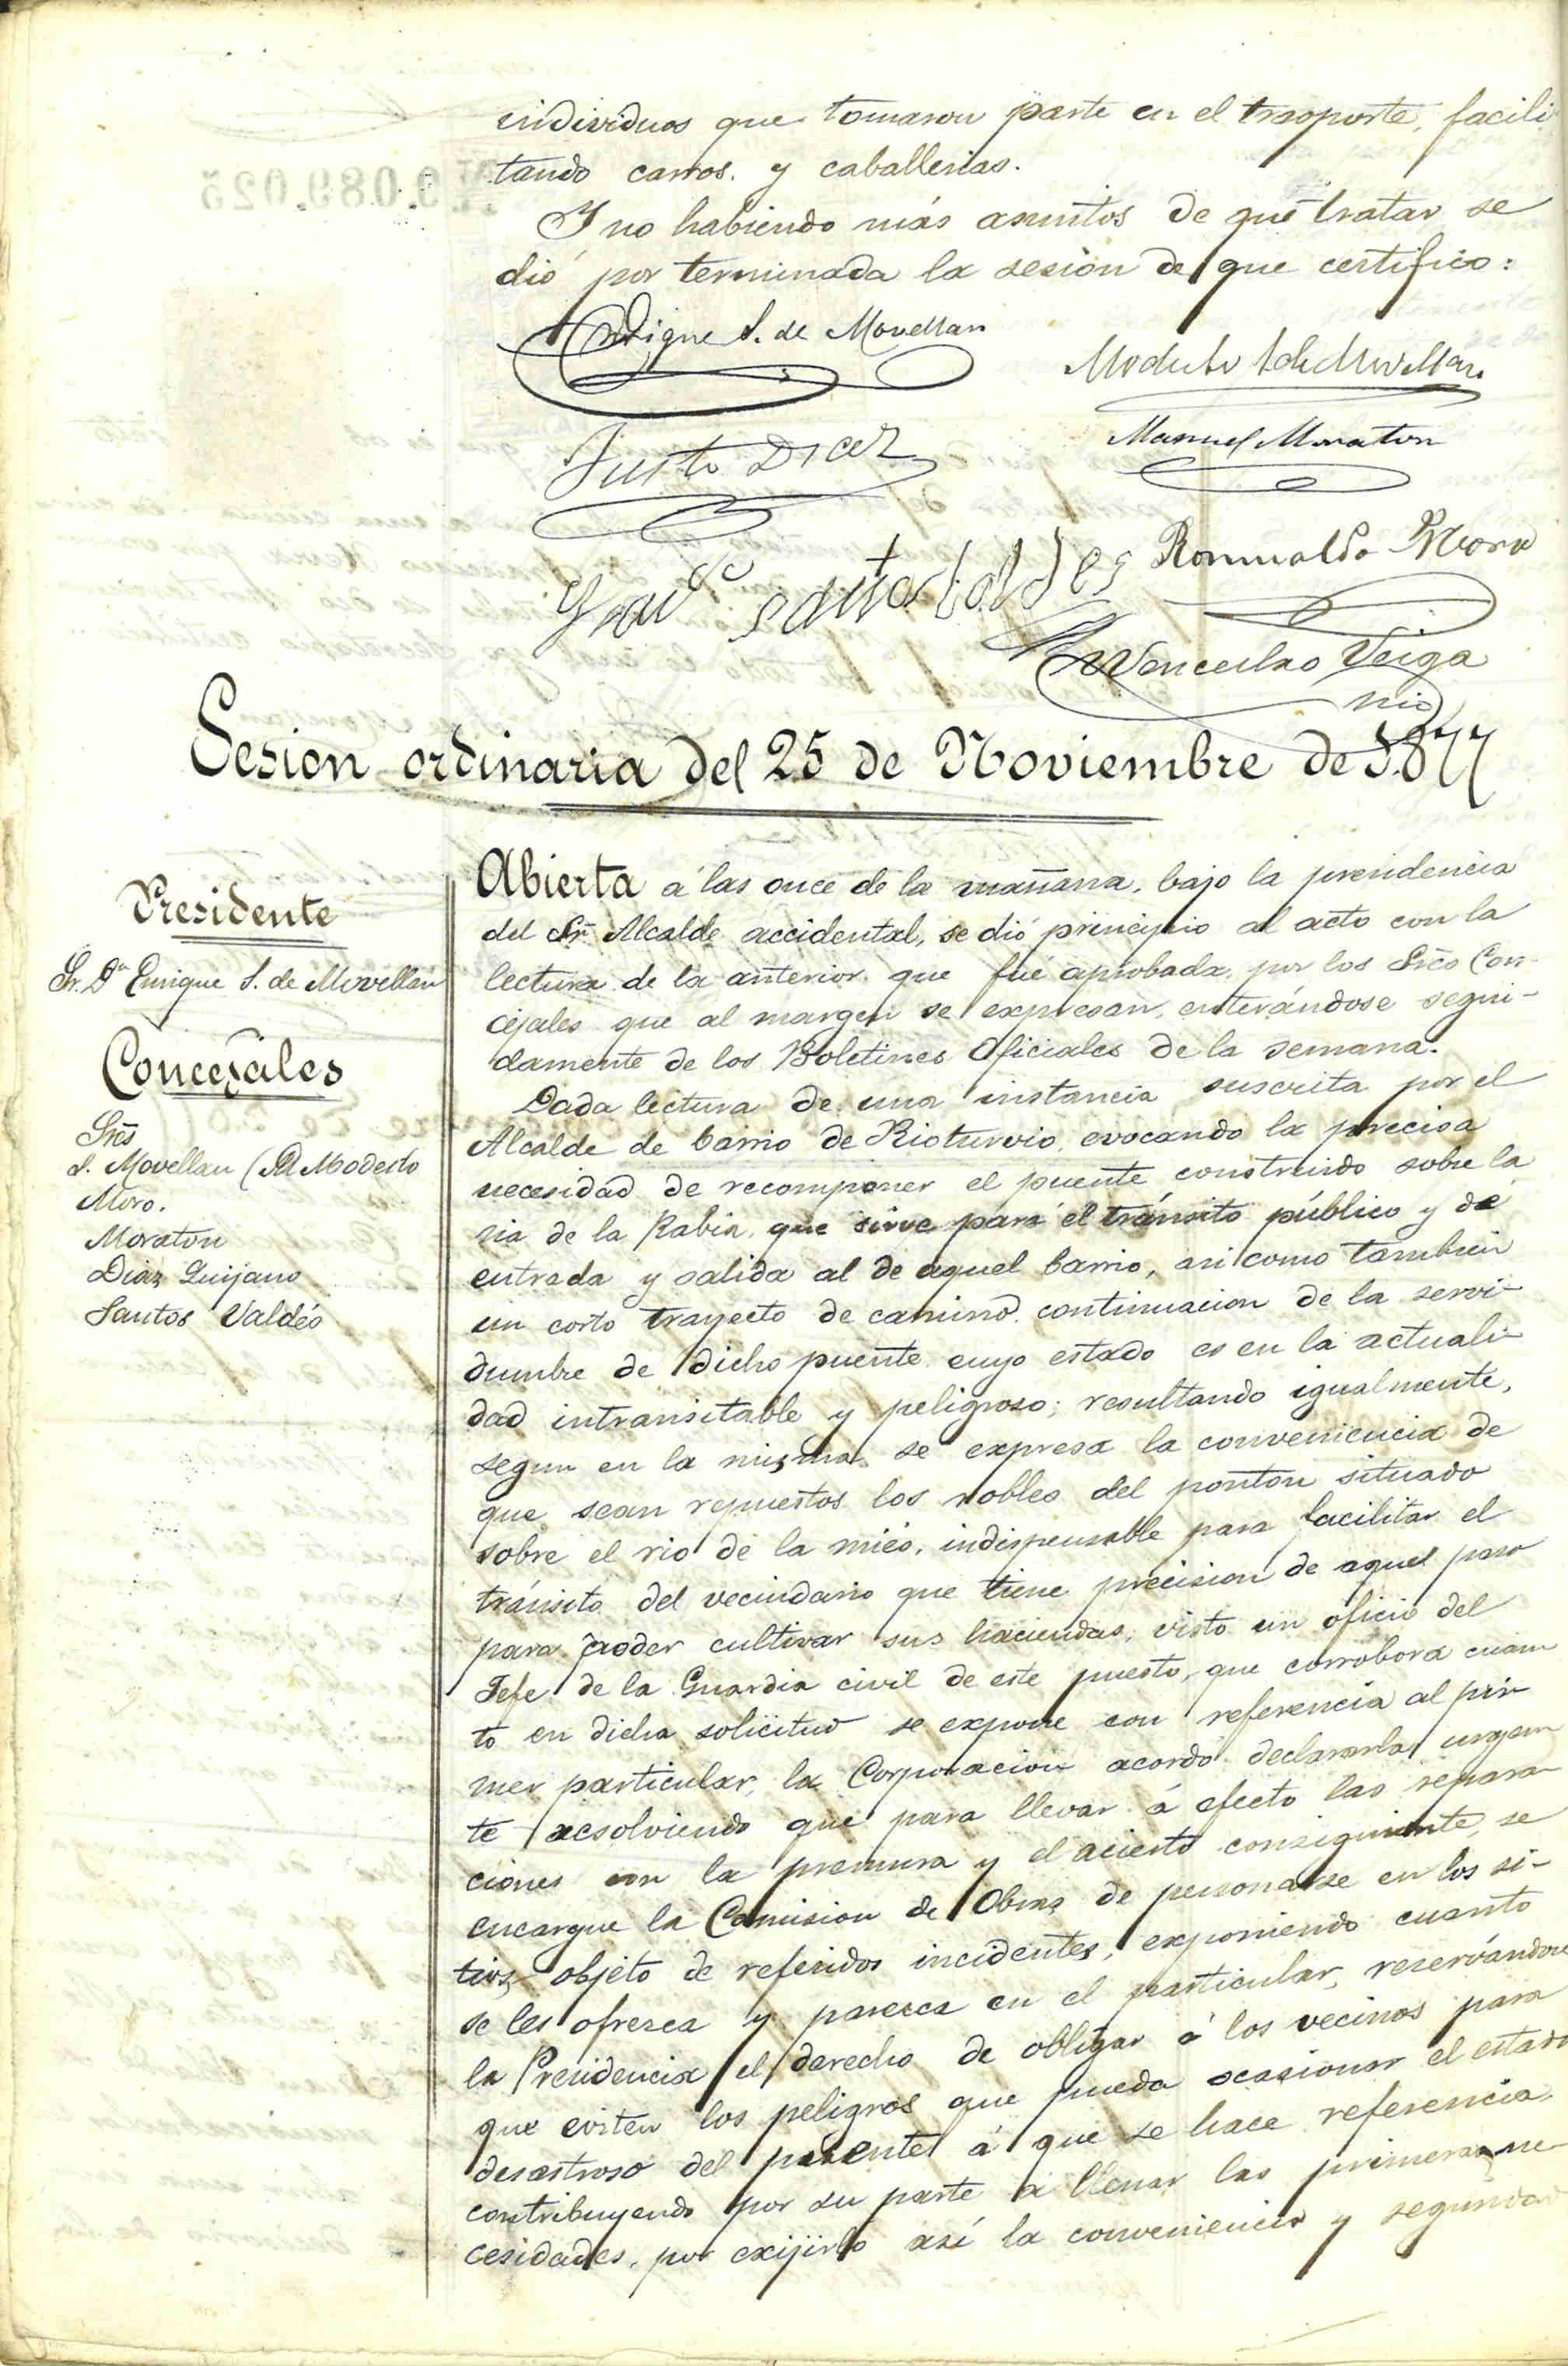 individuos que tomaron parte en el trasporte, facili
tando carros. y caballerias.
Y no habiendo más asuntos de que tratar se
dió por terminada la sesion de que certifico:
Enrique S. de Movellan
Modesto S. de Movellan
Justo Diaz
Manuel Moraton
Franco Santos Valdes
Romualdo Moro
Wenceslao Veiga
Srio
Sesion ordinaria del 25 de Noviembre de 1.877
Presidente
Sr. Dn Enrique S. de Movellan
Concejales
Sres
S. Movellan (D Modesto
Moro.
Moraton
Diaz Quijano
Santos Valdés
Abierta á las once de la mañana, bajo la presidencia
del Sr. Alcalde accidental, se dió principio al acto con la
lectura de la anterior que fué aprobada, por los Sres Con-
cejales que al margen se expresan, enterándose segui-
damente de los Boletines Oficiales de la semana.
Dada lectura de una instancia suscrita por el
Alcalde de barrio de Rioturvio, evocando la precisa
necesidad de recomponer el puente construido sobre la
ria de la Rabia, que sirve para el tránsito público y da
entrada y salida al de aquel barrio, asi como tambien
un corto trayecto de camino continuacion de la servi-
dumbre de dicho puente cuyo estado es en la actuali-
dad intransitable y peligroso; resultando igualmente,
segun en la misma se expresa la conveniencia de
que sean repuestos los robles del ponton situado
sobre el rio de la miés, indispensable para facilitar el
tránsito del vecindario que tiene precision de aquel paso
para poder cultivar sus haciendas; visto un oficio del
Jefe de la Guardia civil de este puesto, que corrobora cuan
to en dicha solicitud se expone con referencia al pri-
mer particular, la Corporacion acordó declararla urgen
te resolviendo que para llevar á efecto las repara
ciones con la premura y el acierto consiguiente, se
encargue la Comision de Obras de personarse en los si-
tios objeto de referidos incidentes, exponiendo cuanto
se les ofrezca y parezca en el particular, reservándose
la Presidencia el derecho de obligar á los vecinos para
que eviten los peligros que pueda ocasionar el estado
desastroso del puente á que se hace referencia,
contribuyendo por su parte á llenar las primeras ne-
cesidades, por exijirlo así la conveniencia y seguridad